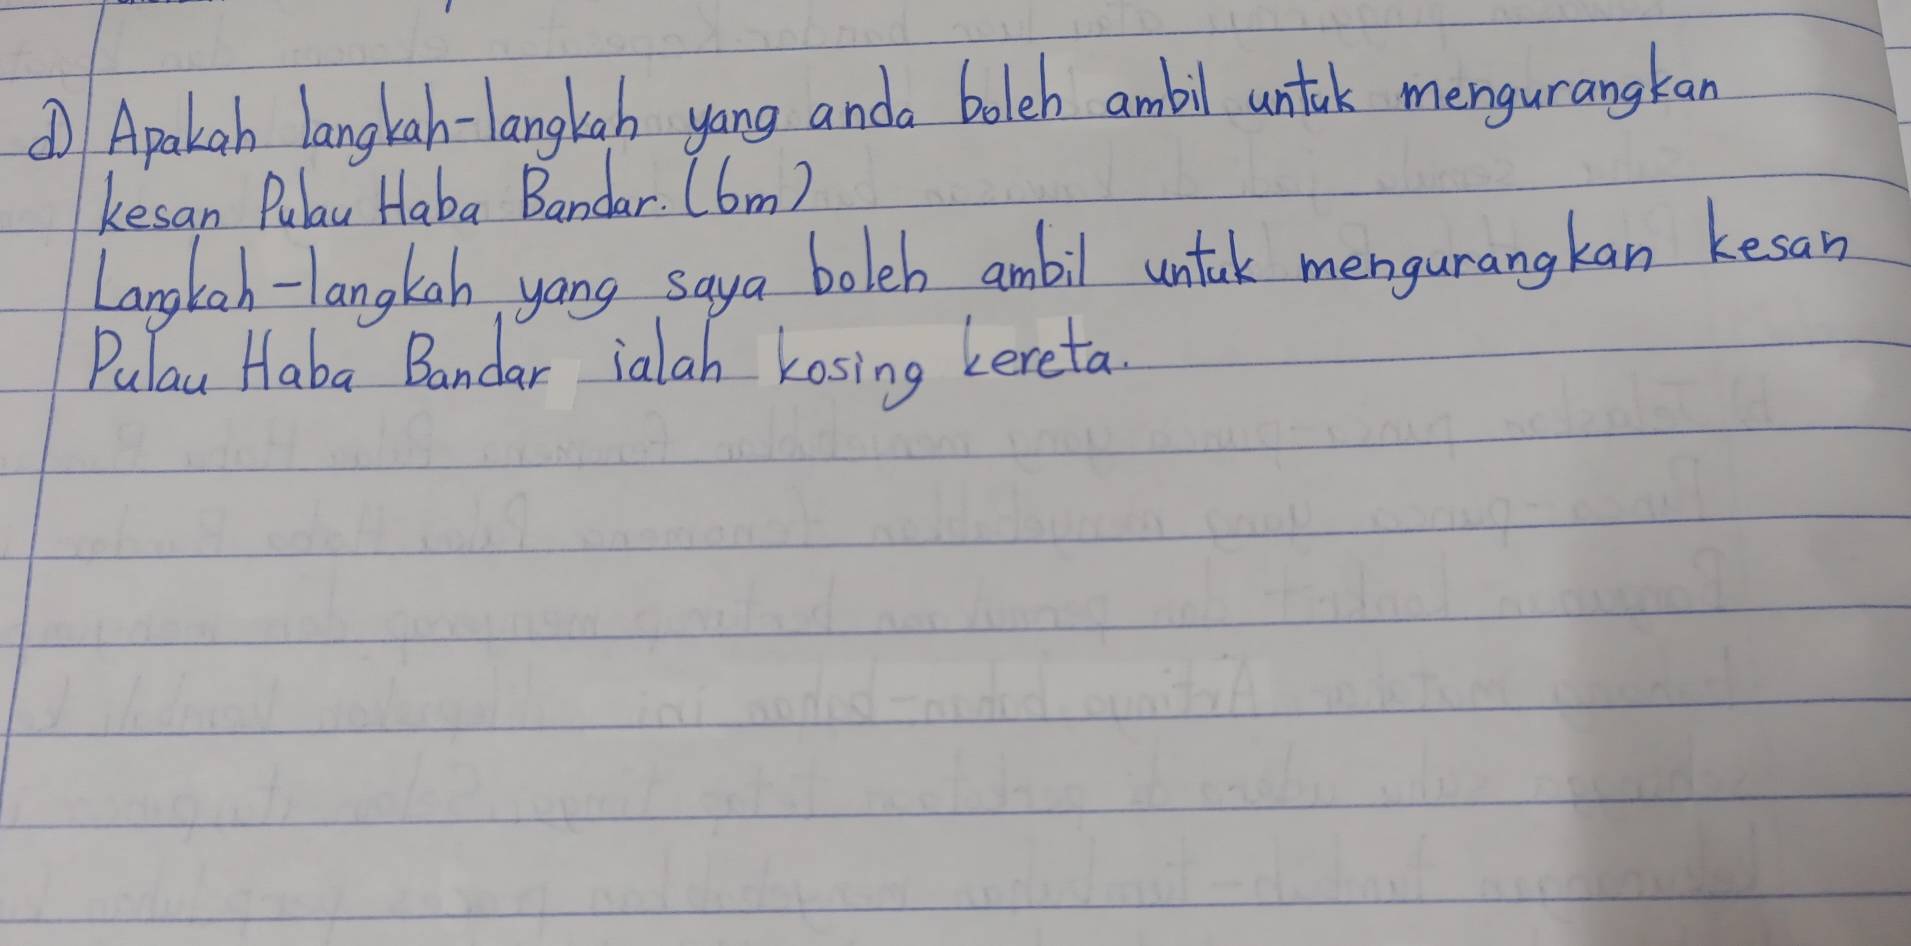 d) Apakah langkah-langkah yang anda boleh ambil untuk mengurangkan
kesan Pulau Haba Bandar. (6m)
Langkah-langkah yang saya boleh ambil untuk mengurangkan kesan
Pulau Haba Bandar ialah kosing kereta.